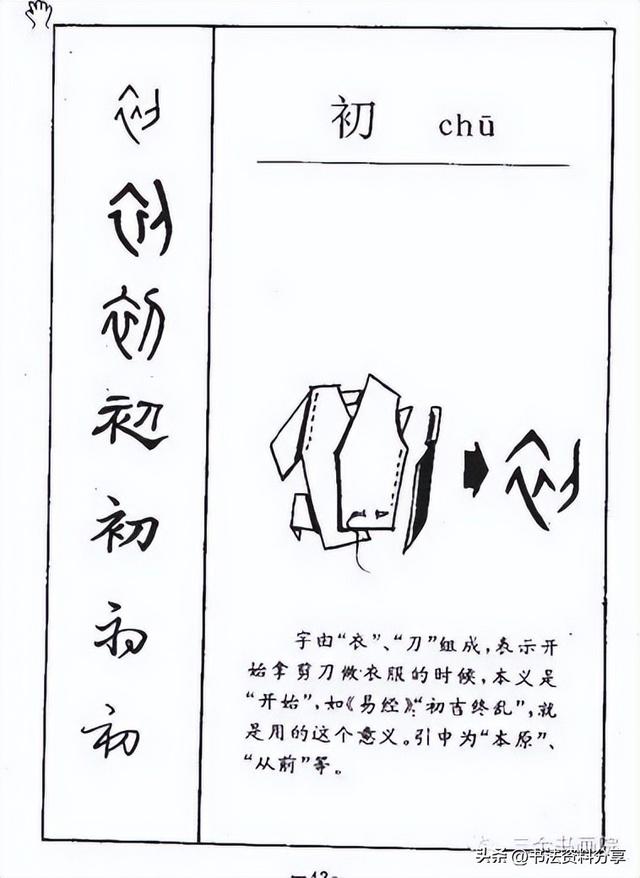 初
初
初
初
初
初
初
初 chū
字由“衣”、“刀”组成,表示开
始拿剪刀做衣服的时候,本义是
“开始”,如《易经》:“初古终乱”,就
是用的这个意义。引中为“本原”、
“从前”等。
头条 @书法资料分享